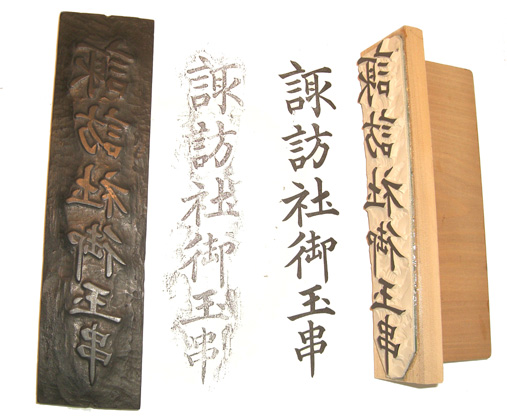 諏訪社御玉串
諏訪社御玉串
諏訪社御玉串
諏訪社御玉串